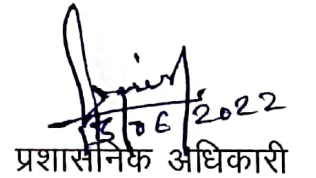 /06/2022
प्रशासनिक अधिकारी